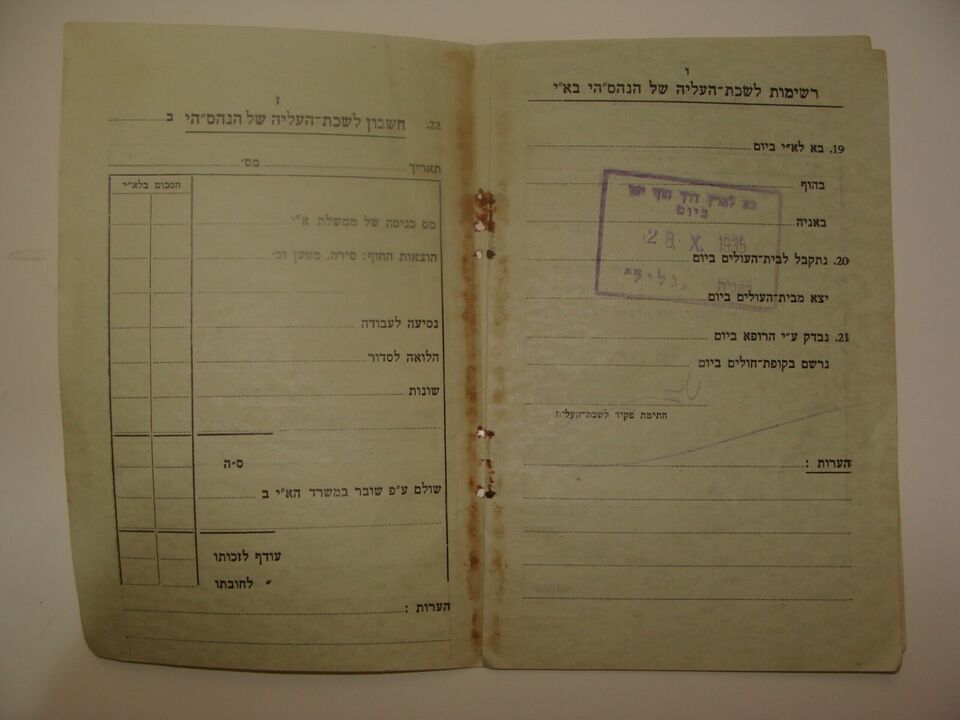 ו
רשימות לשכת-העליה של הנהס״הי בא״י
19. בא לא״י ביום
בחוף
באניה
20. נתקבל לבית-העולים ביום
יצא מבית-העולים ביום
21. נבדק ע״י הרופא ביום
נרשם בקופת-חולים ביום
חתימת פקיד לשכת-העליה
הערות :
בא לארץ דרך חוף יפו
ביום
28. X. 1935
באנית
ז
22. חשבון לשכת-העליה של הנהס״הי ב
תאריך מס׳
הסכום בלא״י
מס כניסה של ממשלת א״י
הוצאות החוף: סירה, מטען וכ׳
נסיעה לעבודה
הלואה לסדור
שונות
ס-ה
שולם ע״פ שובר במשרד הא״י ב
עודף לזכותו
״ לחובתו
הערות :